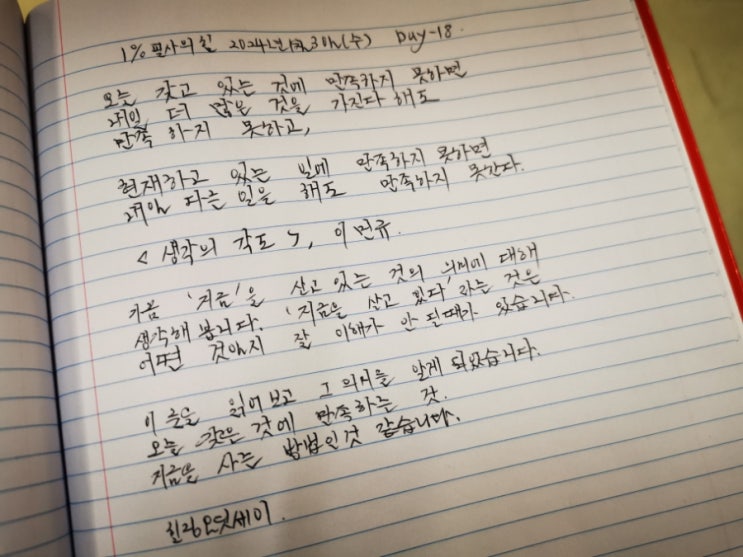 1% 필사의 힘 2024년 1월 3일(수) Day-18.
오늘 갖고 있는 것에 만족하지 못하면
내일 더 많은 것을 가진다 해도
만족 하지 못하고,
현재하고 있는 일에 만족하지 못하면
내일 다른 일을 해도 만족하지 못한다.
< 생각의 각도 >, 이민규.
가끔 '지금'을 살고 있는 것의 의미에 대해
생각해 봅니다. '지금을 살고 있다' 라는 것은
어떤 것인지 잘 이해가 안 될때가 있습니다.
이 글을 읽어보고 그 의미를 알게 되었습니다.
오늘 갖은 것에 만족하는 것.
지금을 사는 방법인것 같습니다.